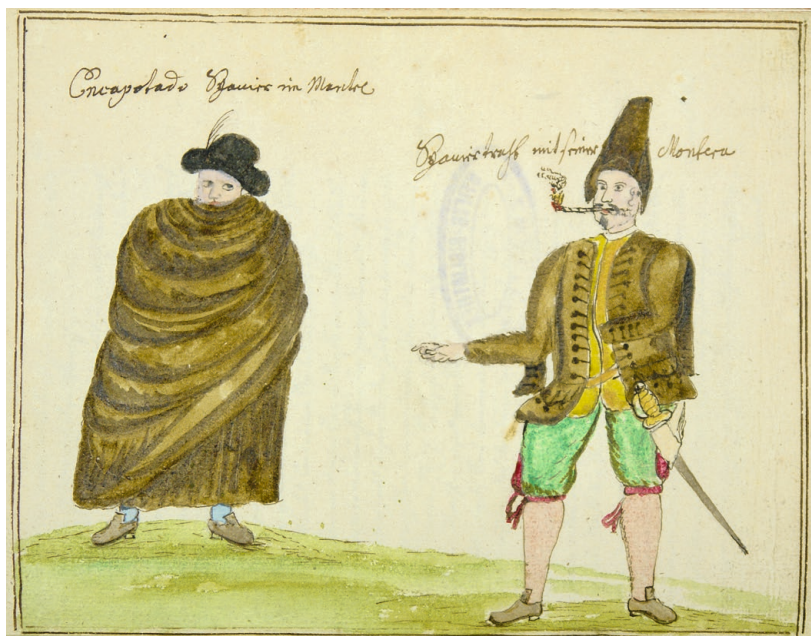 Encapotado Spanier im Mantel
Spanier tracht mit seiner Montera